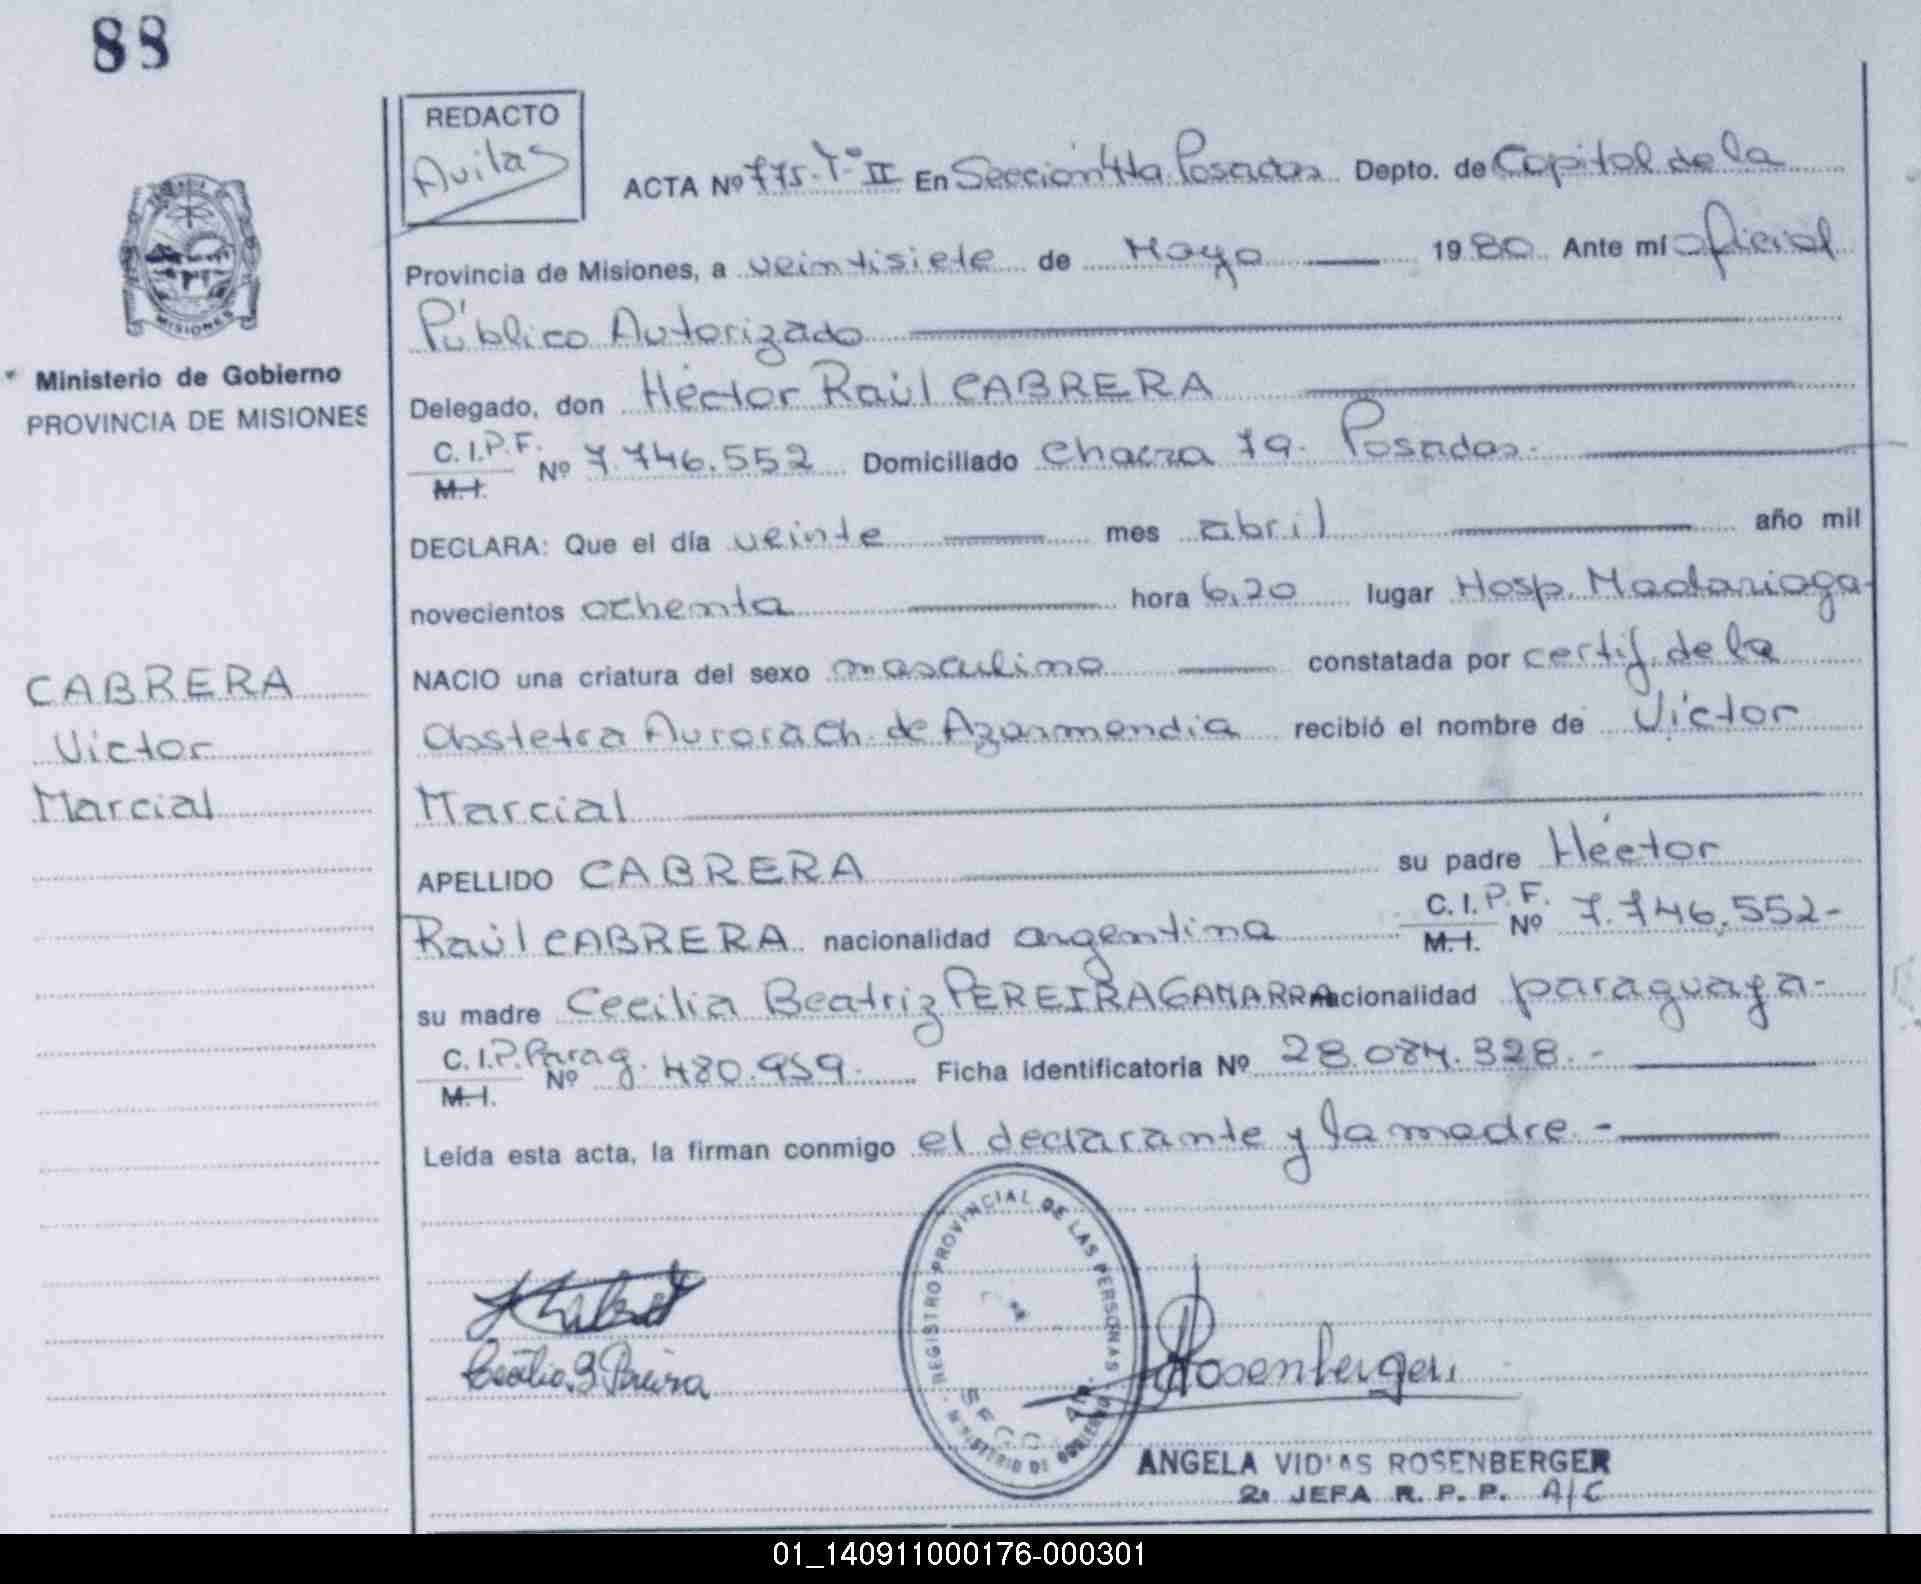 88
REDACTO
Avilas
ACTA Nº 775. Tº II En Sección 4ta Posadas Depto. de Capital de la
Provincia de Misiones, a veintisiete de Mayo 1980 Ante mí oficial
Público Autorizado
Delegado, don Héctor Raúl CABRERA
C. I. P. F.
M. I. Nº 7.746.552 Domiciliado Chacra 79. Posadas.
DECLARA: Que el día veinte mes abril año mil
novecientos ochenta hora 6,20 lugar Hosp. Madariaga
NACIO una criatura del sexo masculino constatada por certif. de la
Obstetra Aurora Ch. de Azarmendia recibió el nombre de Víctor
Marcial
APELLIDO CABRERA su padre Héctor
Raúl CABRERA nacionalidad argentina C. I. P. F. M. I. Nº 7.746.552-
su madre Cecilia Beatriz PEREIRA GAMARRA nacionalidad paraguaya-
C. I. P. Parag. M. I. Nº 480.959. Ficha identificatoria Nº 28.084.328.-
Leída esta acta, la firman conmigo el declarante y la madre.-
MISIONES
Ministerio de Gobierno
PROVINCIA DE MISIONES
CABRERA
Víctor
Marcial
Cecilia B Pereira
REGISTRO PROVINCIAL DE LAS PERSONAS
MINISTERIO DE GOBIERNO
SECC. 4ta.
Rosenberger
ANGELA ROSENBERGER
2ª JEFA R. P. P. A/C
01_140911000176-000301